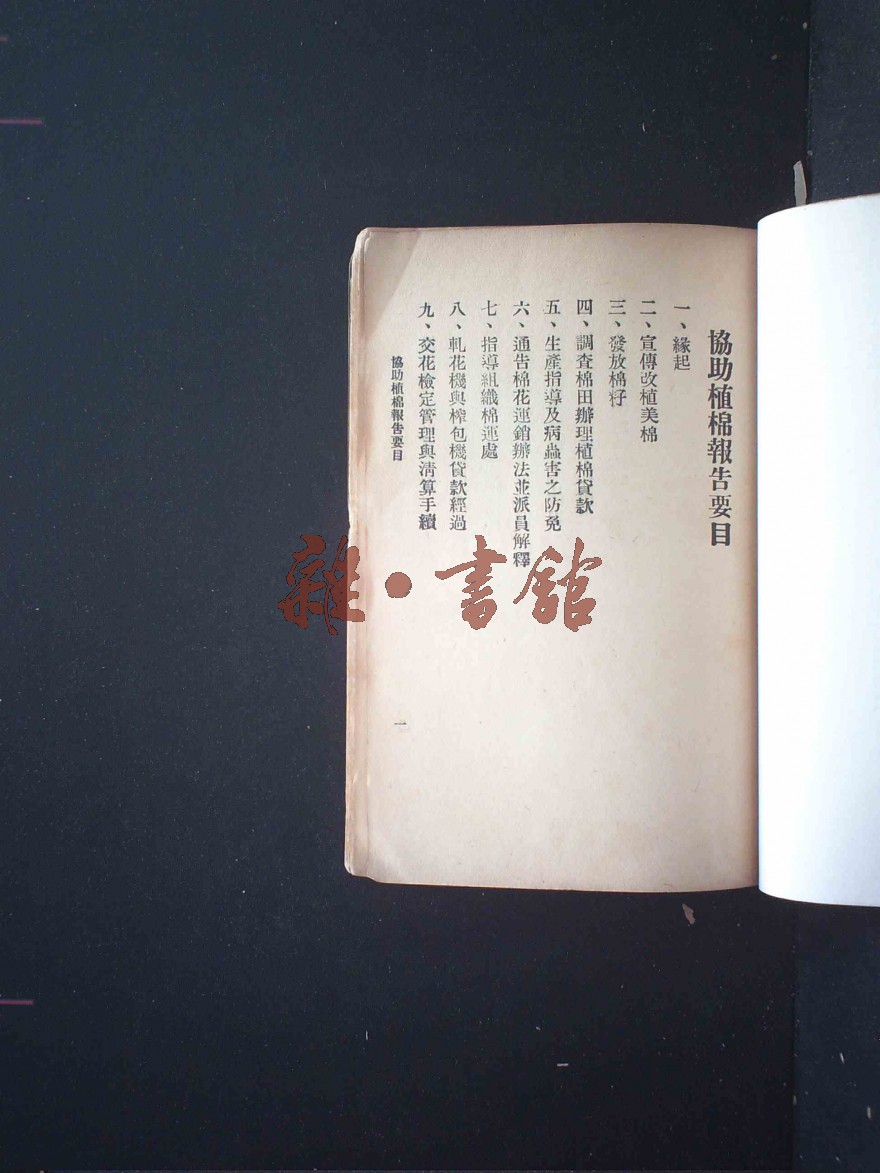 協助植棉報告要目
一、緣起
二、宣傳改植美棉
三、發放棉籽
四、調查棉田辦理植棉貸款
五、生產指導及病蟲害之防免
六、通告棉花運銷辦法並派員解釋
七、指導組織棉運處
八、軋花機與榨包機貸款經過
九、交花檢定管理與淸算手續
協助植棉報告要目
一
雜·書館